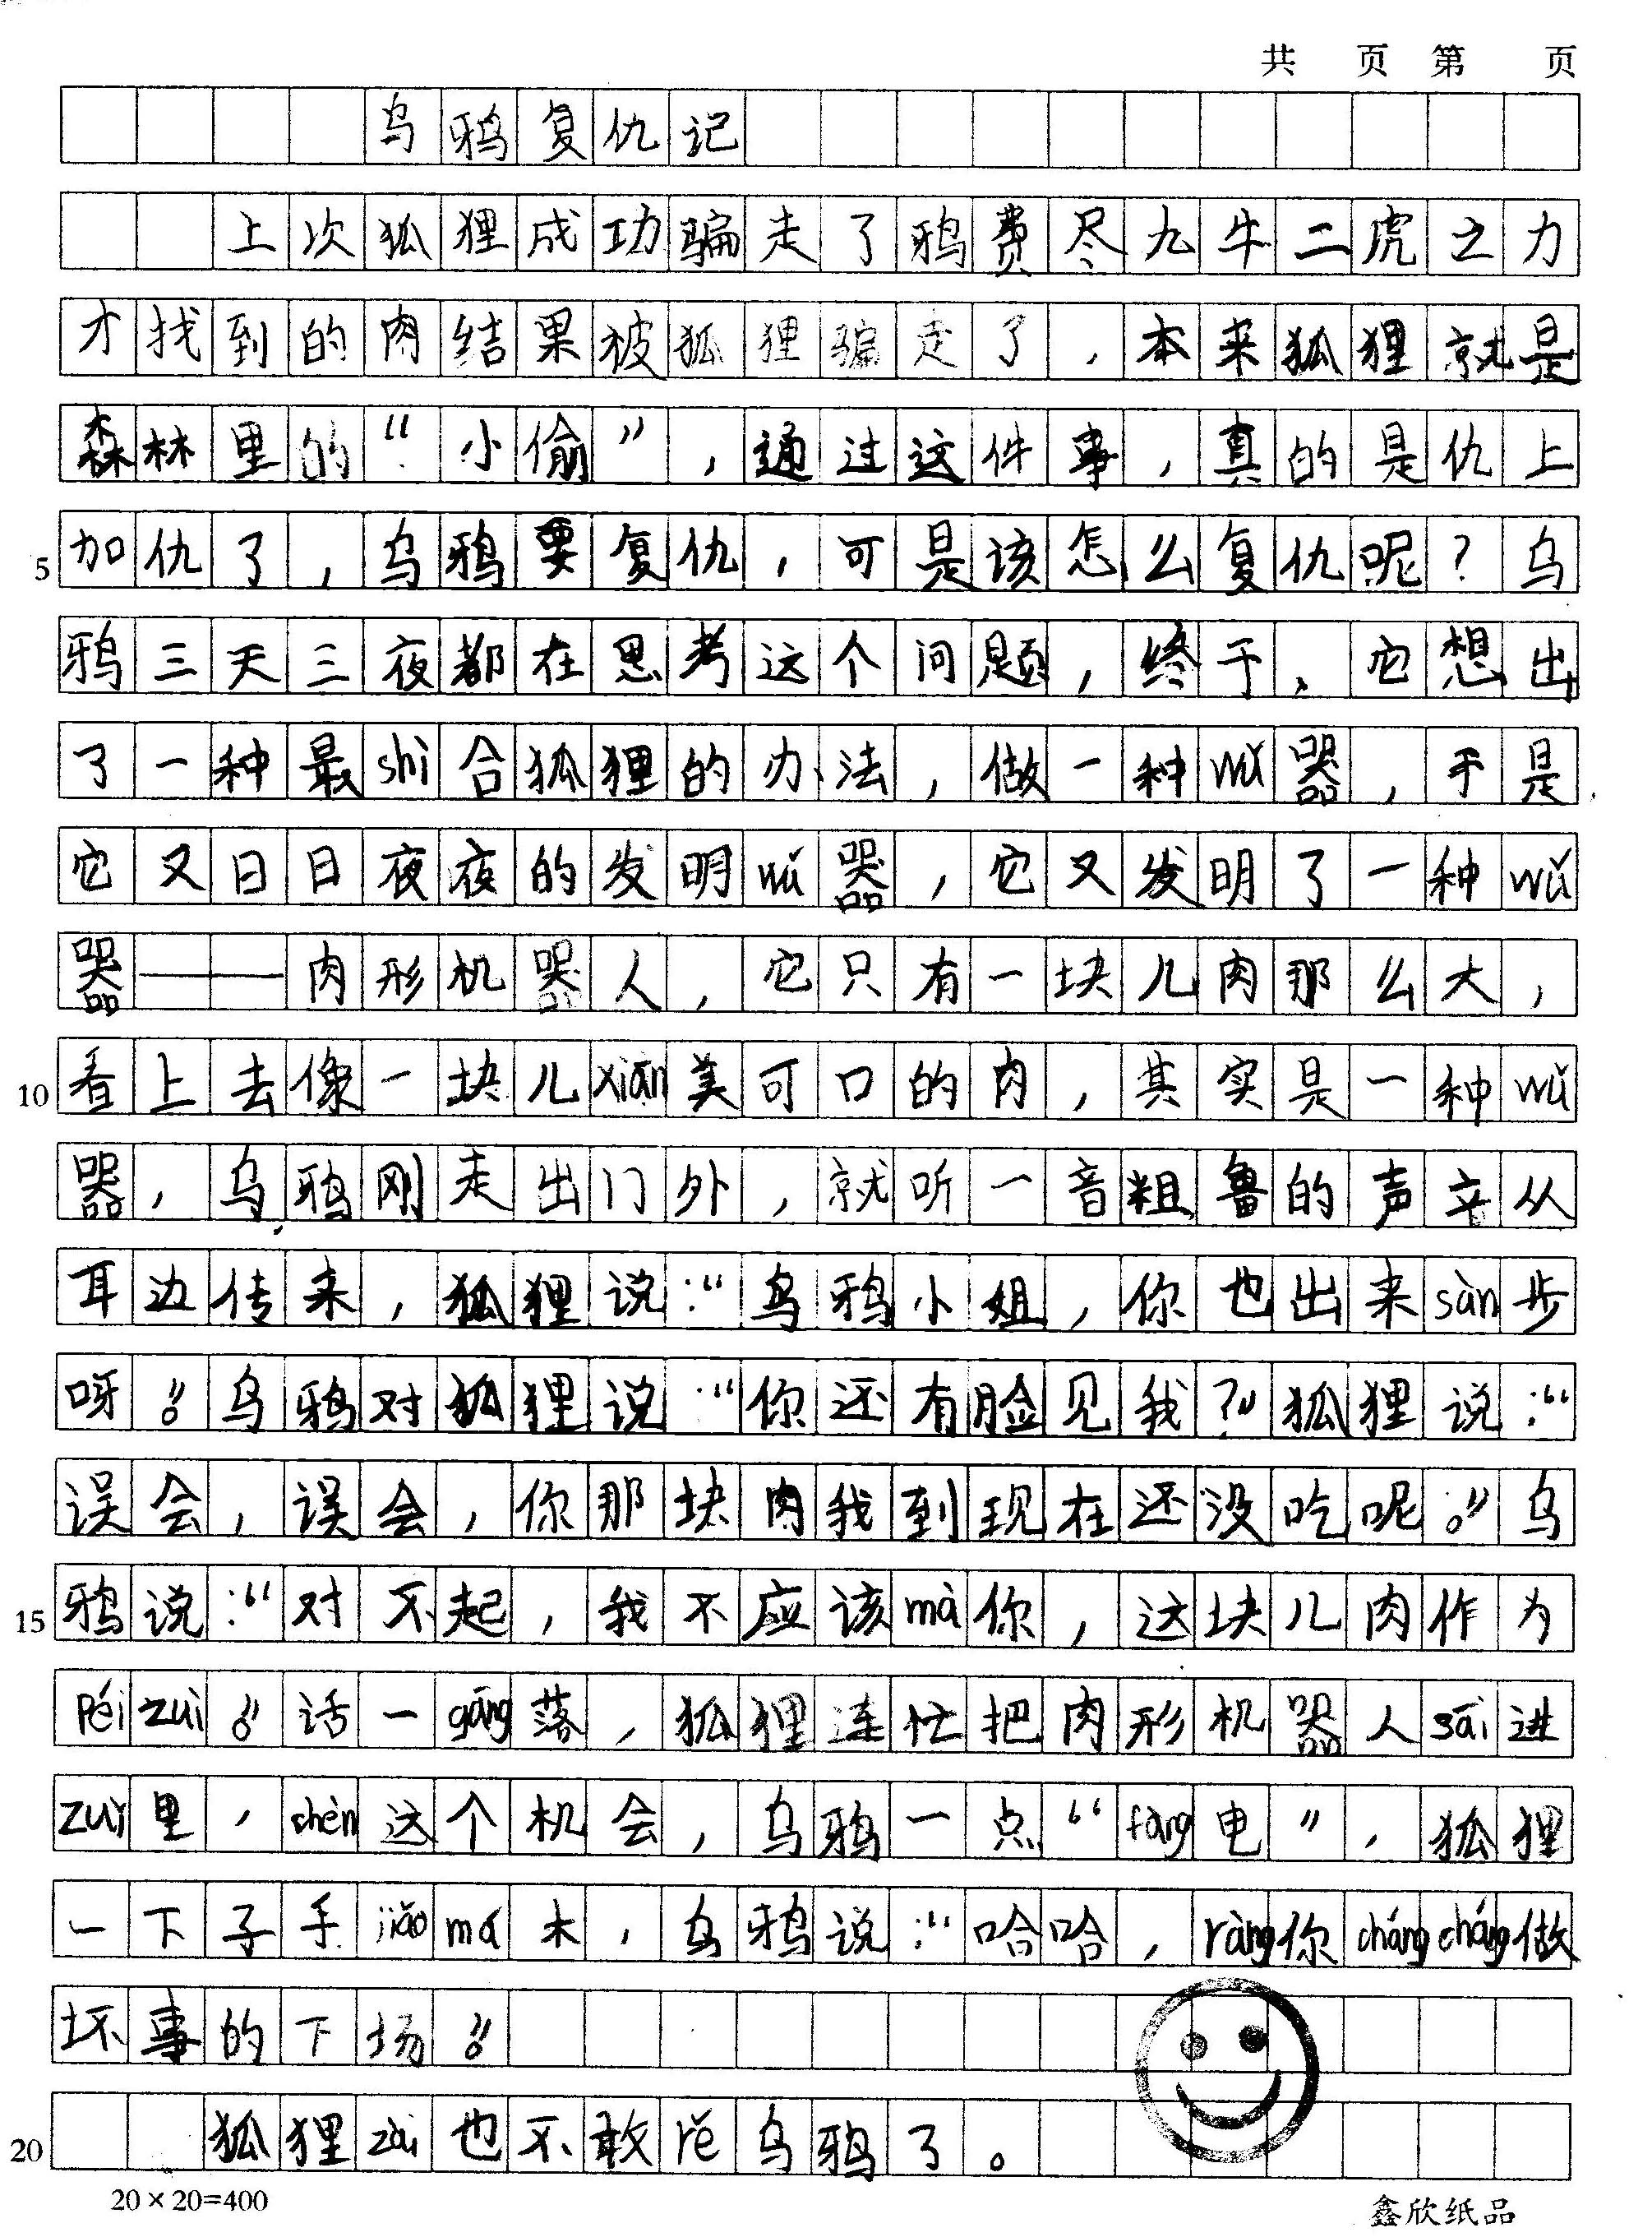 共 页 第 页
乌鸦复仇记
上次狐狸成功骗走了鸦费尽九牛二虎之力
才找到的肉结果被狐狸骗走了,本来狐狸就是
森林里的“小偷”,通过这件事,真的是仇上
5 加仇了,乌鸦要复仇,可是该怎么复仇呢?乌
鸦三天三夜都在思考这个问题,终于,它想出
了一种最shì合狐狸的办法,做一种wǔ器,于是
它又日日夜夜的发明wǔ器,它又发明了一种wǔ
器——肉形机器人,它只有一块儿肉那么大,
10 看上去像一块儿xiān美可口的肉,其实是一种wǔ
器,乌鸦刚走出门外,就听一音粗鲁的声音从
耳边传来,狐狸说:“乌鸦小姐,你也出来sàn步
呀。”乌鸦对狐狸说:“你还有脸见我?”狐狸说:“
误会,误会,你那块肉我到现在还没吃呢。”乌
15 鸦说:“对不起,我不应该mà你,这块儿肉作为
péi zuì。”话一gāng落,狐狸连忙把肉形机器人sāi进
zuǐ里,chèn这个机会,乌鸦一点“fàng电”,狐狸
一下子手jiǎo má木,乌鸦说:“哈哈,ràng你cháng cháng做
坏事的下场。”
20 狐狸zài也不敢rě乌鸦了。
20×20=400 鑫欣纸品